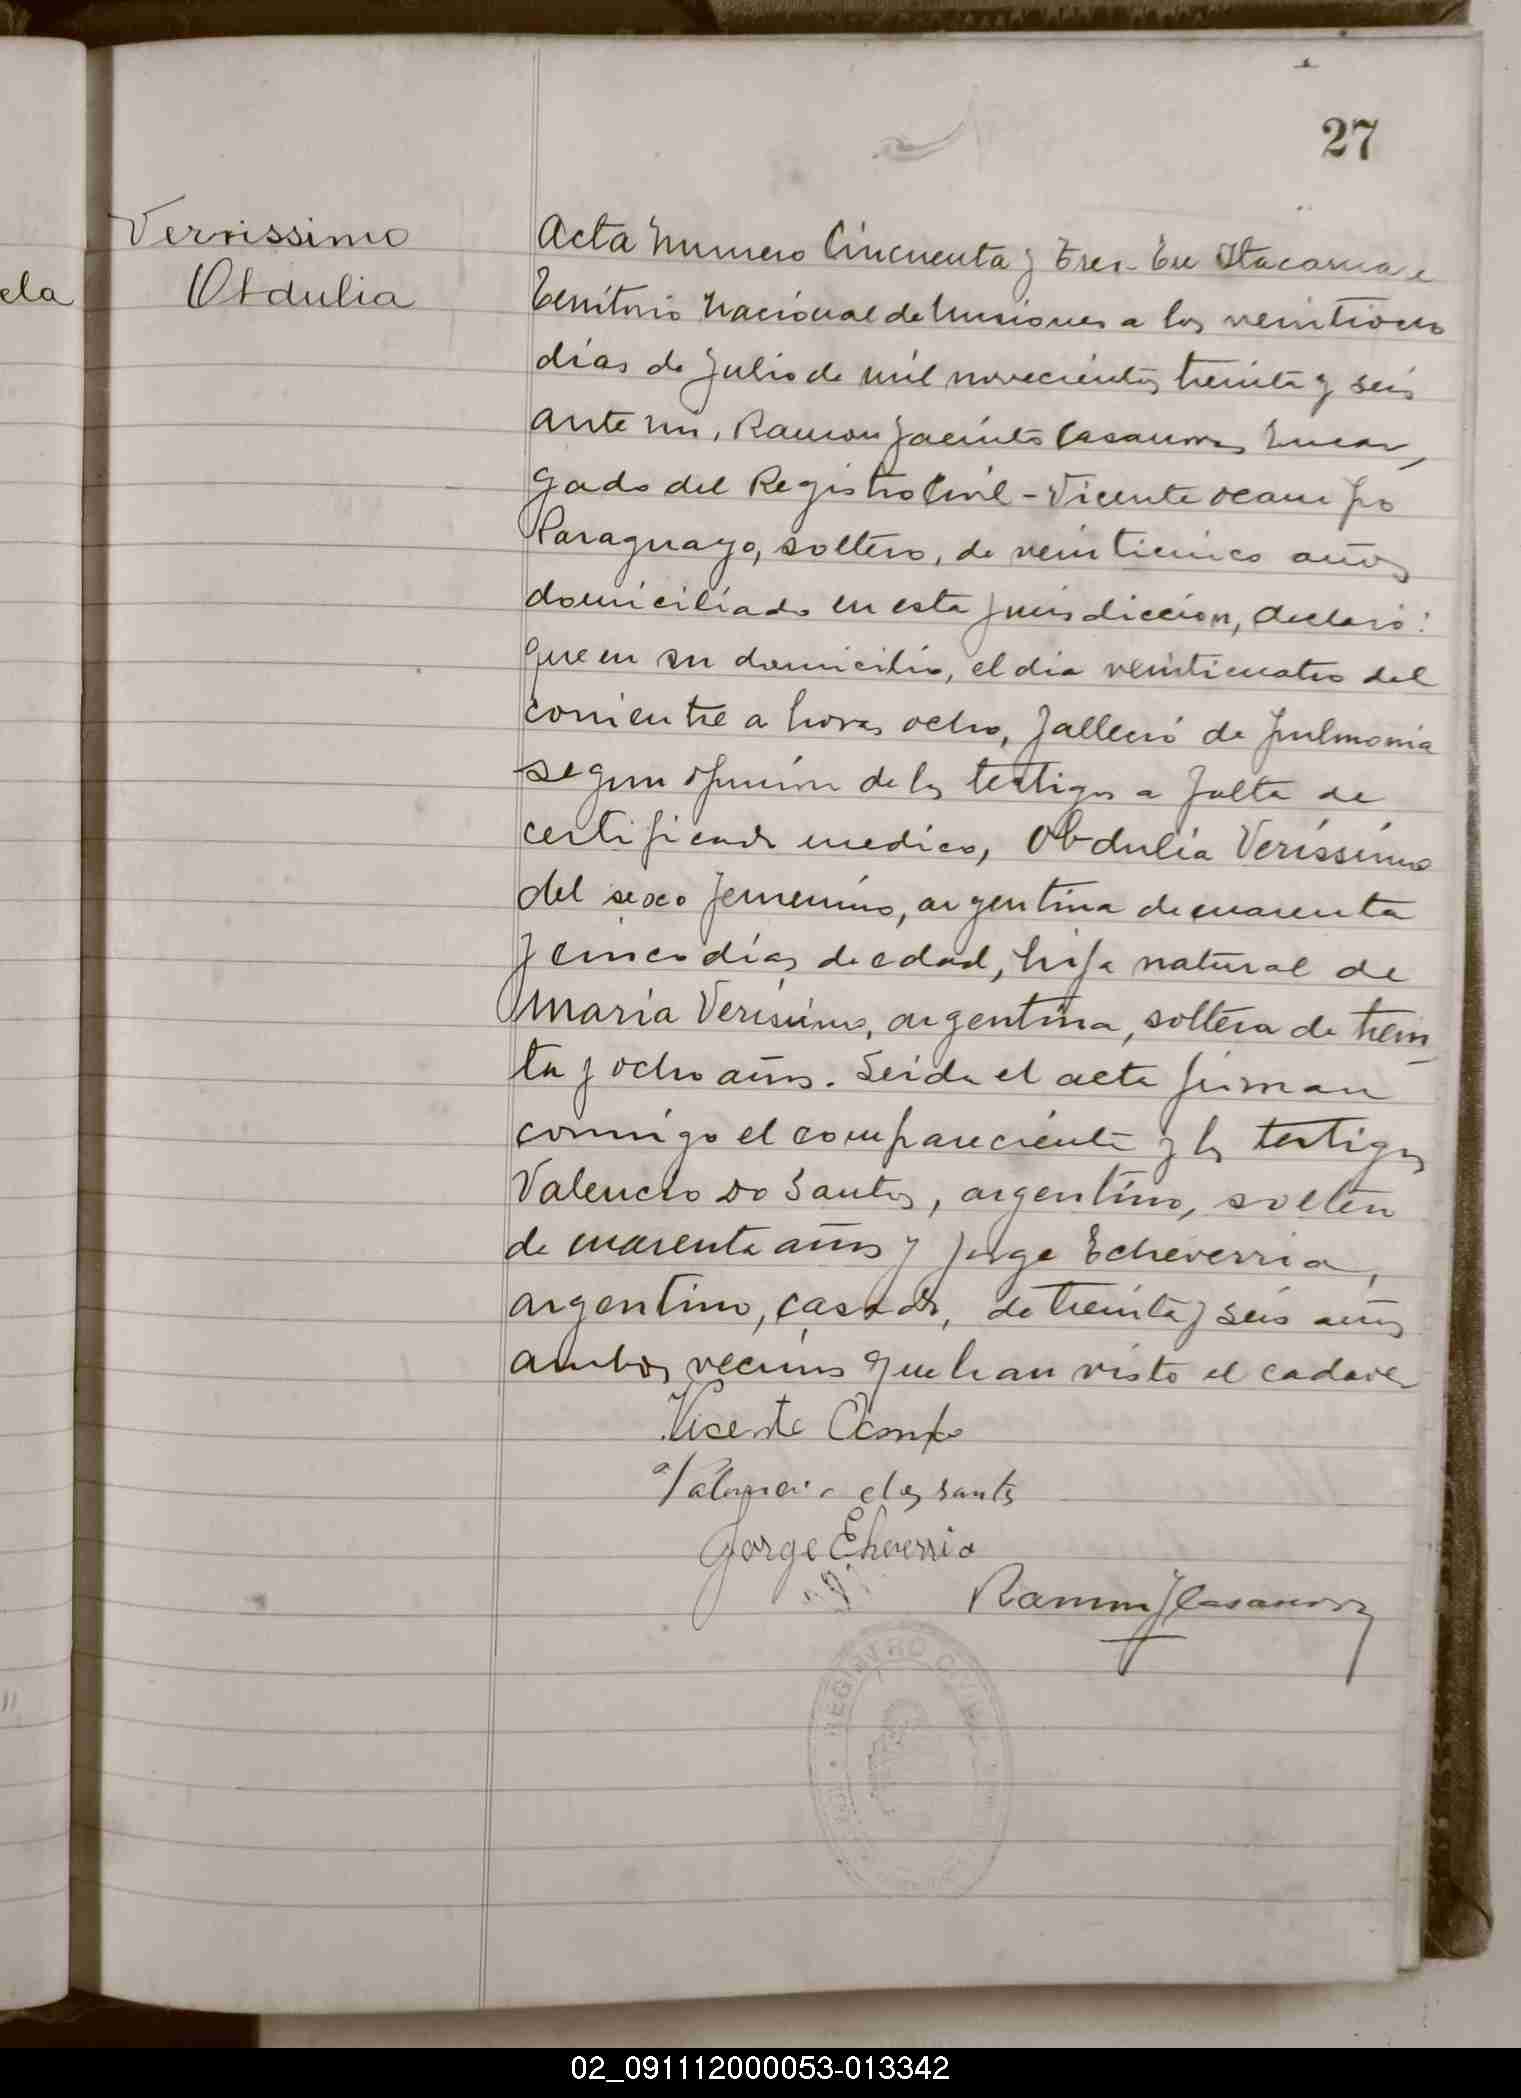 27
Verissimo
Obdulia
ela
Acta numero Cincuenta y Tres - En Itacaruare
Territorio Nacional de Misiones a los veintiocho
días de Julio de mil novecientos treinta y seis
ante mi, Ramon Jacinto Casanova, Encar
gado del Registro Civil - Vicente Ocampo
Paraguayo, soltero, de veinticinco años
domiciliado en esta jurisdiccion, declaró:
Que en su domicilio, el dia veinticuatro del
corriente a horas ocho, falleció de pulmonia
segun opinión de los testigos a falta de
certificado medico, Obdulia Veríssimo
del sexo femenino, argentina de cuarenta
y cinco días de edad, hija natural de
María Verísimo, argentina, soltera de trein
ta y ocho años. Leida el acta firman
conmigo el compareciente y los testigos
Valencio Do Santos, argentino, soltero
de cuarenta años y Jorge Echeverria,
argentino, casado, de treinta y seis años
ambos vecinos que han visto el cadaver
Vicente Ocampo
Valencio dos santos
Jorge Eheverria
Ramon J Casanova
REGISTRO CIVIL
02_091112000053-013342